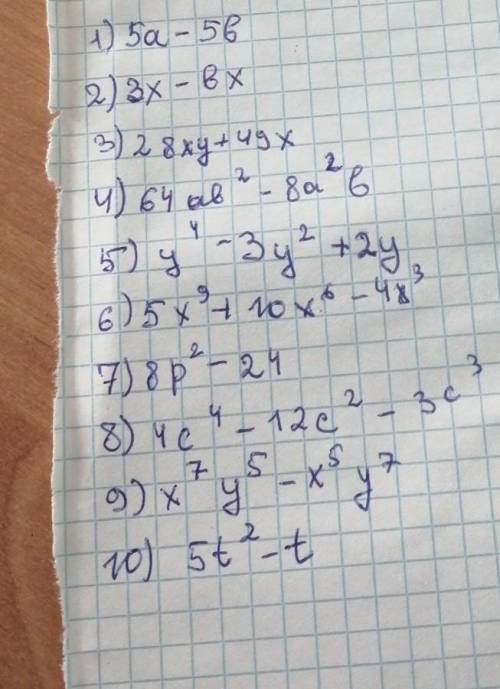 1) 5a - 5b
2) 3x - bx
3) 28xy + 49x
4) 64ab² - 8a²b
5) y⁴ - 3y² + 2y
6) 5x⁹ + 10x⁶ - 4x³
7) 8p² - 24
8) 4c⁴ - 12c² - 3c³
9) x⁷ y⁵ - x⁵ y⁷
10) 5t² - t